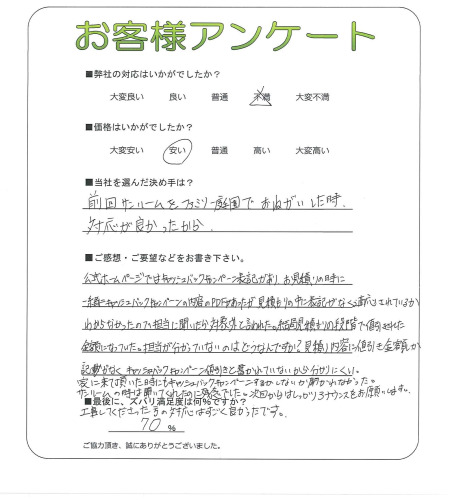 お客様アンケート
■弊社の対応はいかがでしたか?
大変良い 良い 普通 不満 大変不満
■価格はいかがでしたか?
大変安い 安い 普通 高い 大変高い
■当社を選んだ決め手は?
前回サンルームをファミリー庭園でおねがいした時、
対応が良かったから。
■ご感想・ご要望などをお書き下さい。
公式ホームページではキャッシュバックキャンペーン表記があり、お見積りの時に
一緒にキャッシュバックキャンペーンの内容のPDFもあったが見積もりの中に表記がなく適応されているか
わからなかったので担当に聞いたら対象外と言われた。結局見積もりの段階で値引きされた
金額になっていた。担当が分かっていないのはどうなんですか?見積り内容に値引き金額が
記載がなくキャッシュバックキャンペーン値引きと書かれていないから分かりにくい。
家に来て頂いた時にもキャッシュバックキャンペーンするかしないか聞かれなかった。
サンルームの時は聞いてくれたのに残念でした。次回からはしっかりアナウンスをお願いします。
■最後に、ズバリ満足度は何%ですか?
工事してくださった方の対応はすごく良かったです。
70 %
ご協力頂き、誠にありがとうございました。